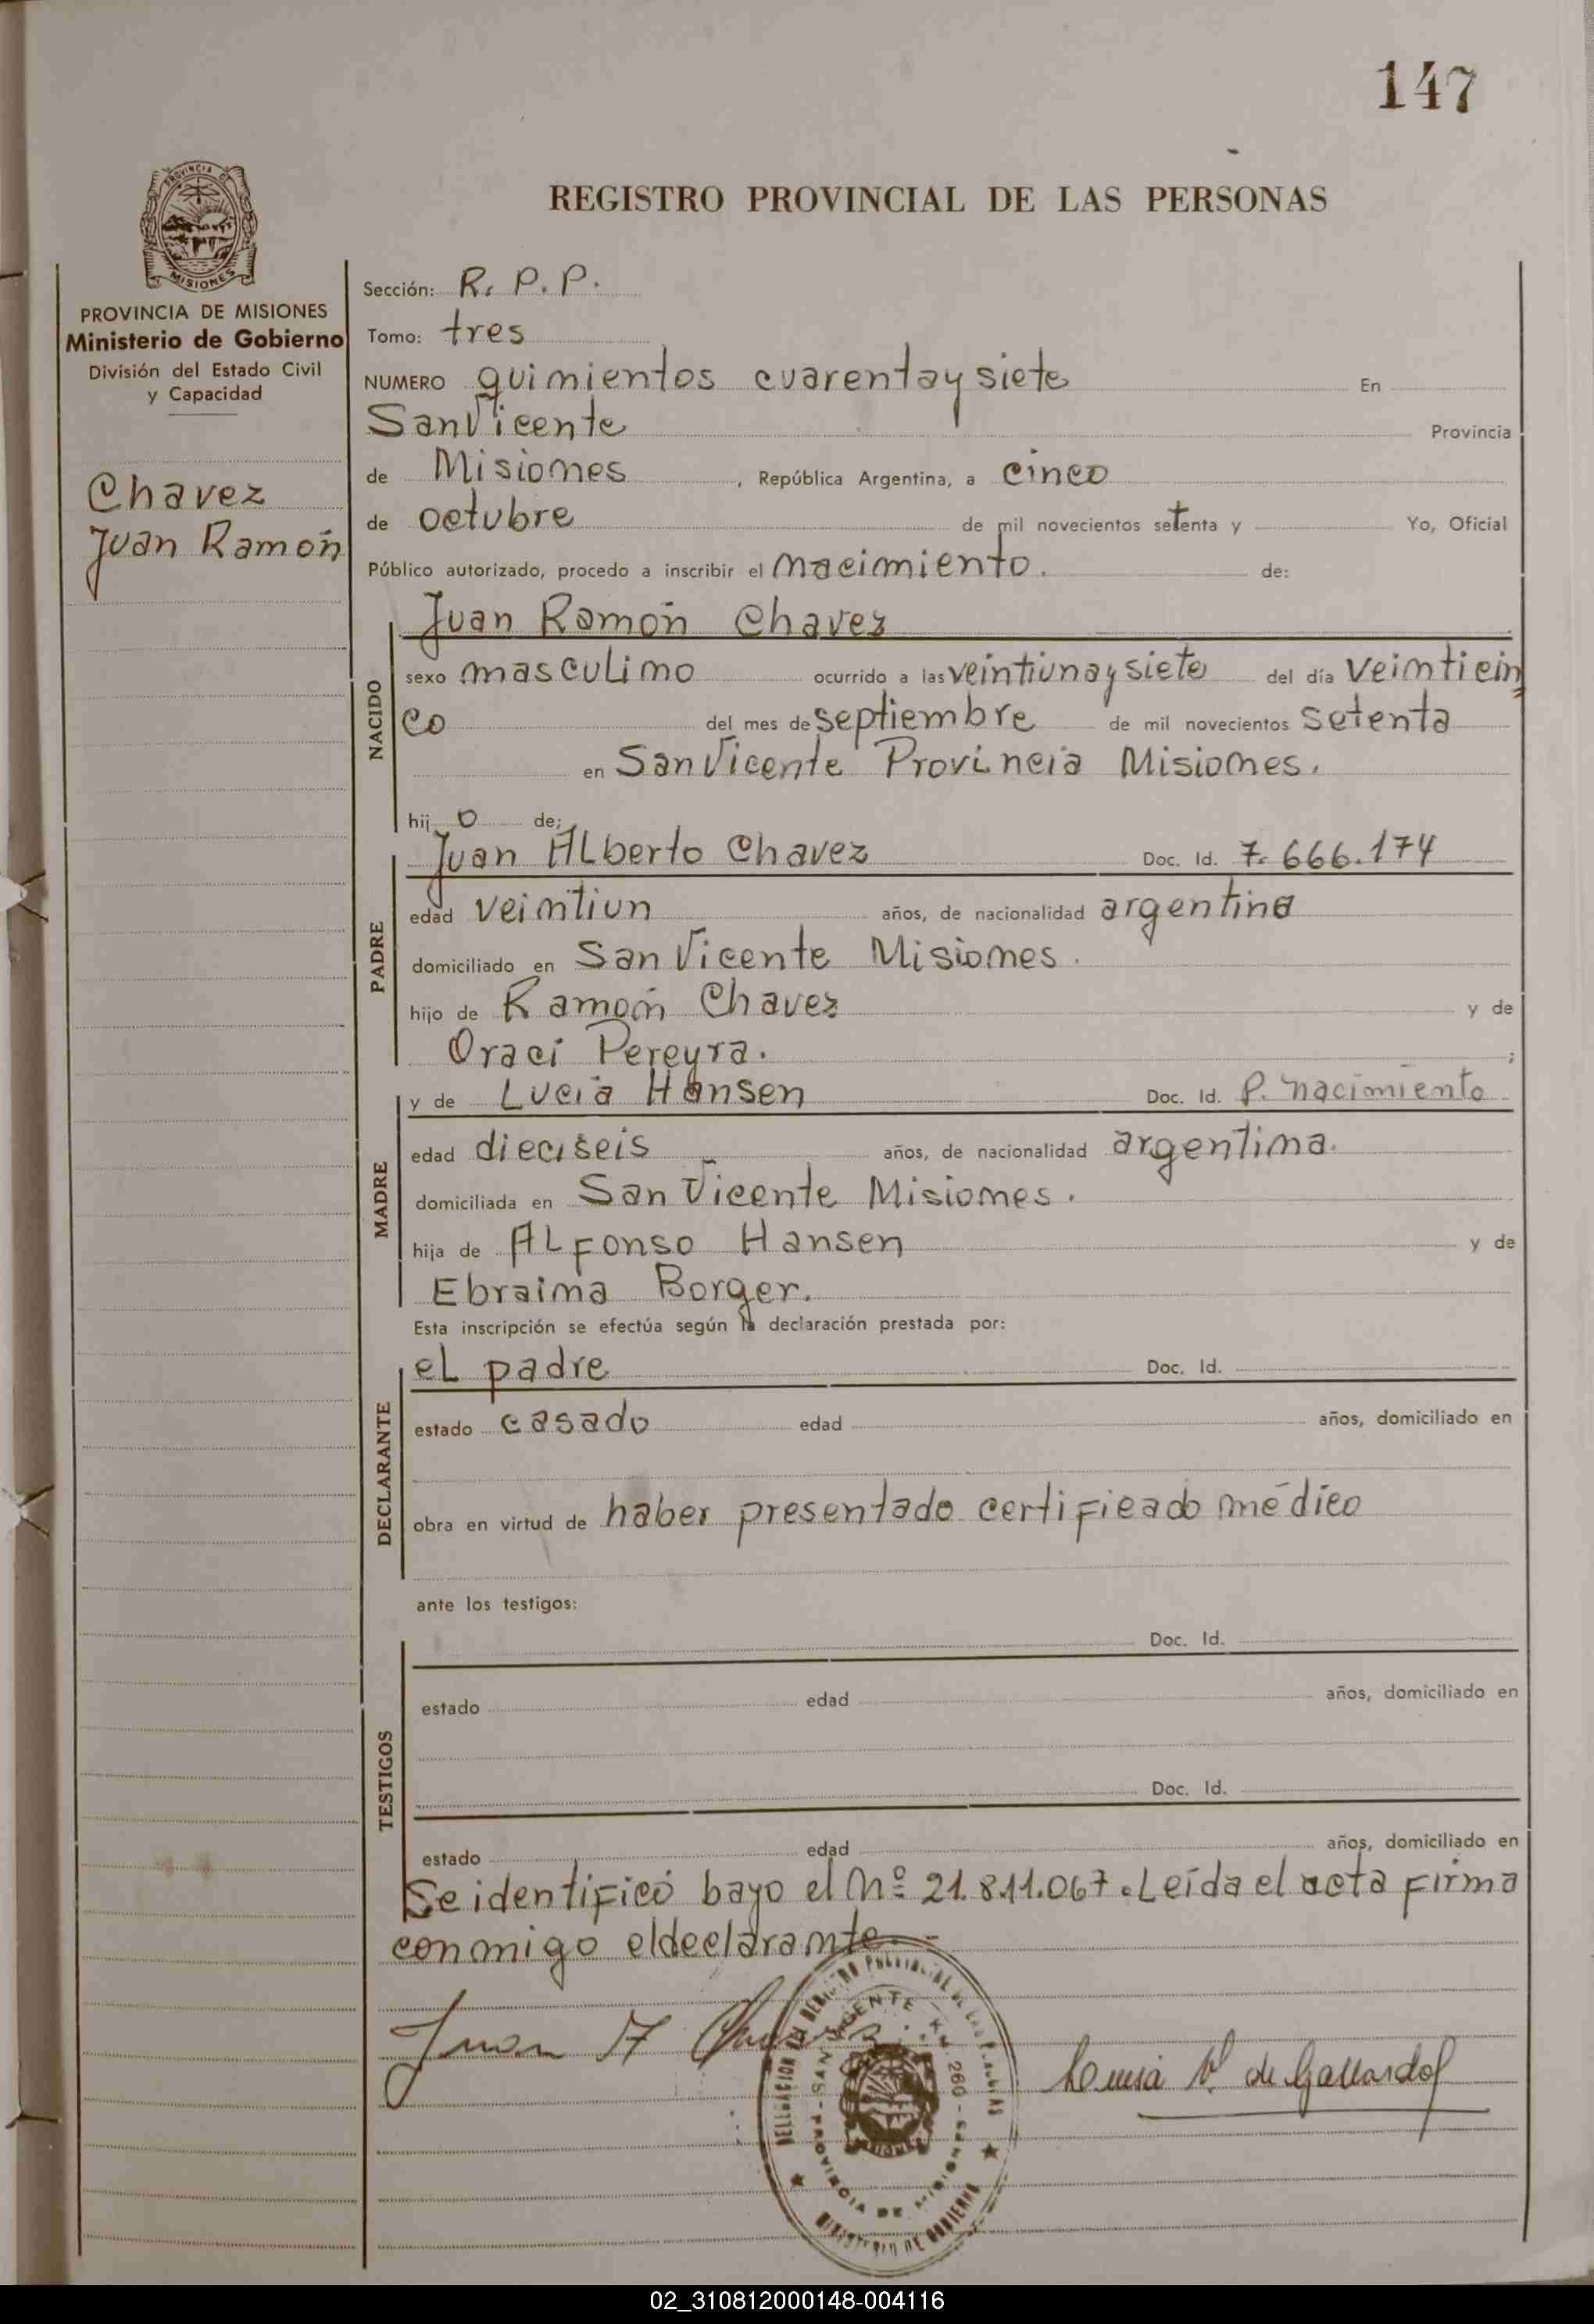 147
PROVINCIA DE
MISIONES
REGISTRO PROVINCIAL DE LAS PERSONAS
PROVINCIA DE MISIONES
Ministerio de Gobierno
División del Estado Civil
y Capacidad
Chavez
Juan Ramón
Sección: R. P. P.
Tomo: tres
NUMERO quinientos cuarenta y siete En
San Vicente Provincia
de Misiones, República Argentina, a cinco
de octubre de mil novecientos setenta y Yo, Oficial
Público autorizado, procedo a inscribir el nacimiento. de:
NACIDO
Juan Ramón Chavez
sexo masculino ocurrido a las veintiuna y siete del día veinticin
co del mes de septiembre de mil novecientos setenta
en San Vicente Provincia Misiones.
hij o de:
PADRE
Juan Alberto Chavez Doc. Id. 7.666.174
edad veintiun años, de nacionalidad argentina
domiciliado en San Vicente Misiones.
hijo de Ramón Chavez y de
Oraci Pereyra. ;
MADRE
y de Lucia Hansen Doc. Id. P. nacimiento
edad dieciseis años, de nacionalidad argentina.
domiciliada en San Vicente Misiones.
hija de Alfonso Hansen y de
Ebraima Borger.
Esta inscripción se efectúa según la declaración prestada por:
DECLARANTE
el padre Doc. Id.
estado casado edad años, domiciliado en
obra en virtud de haber presentado certificado médico
ante los testigos:
TESTIGOS
Doc. Id.
estado edad años, domiciliado en
Doc. Id.
estado edad años, domiciliado en
Se identificó bayo el Nº 21.811.067. Leída el acta firma
conmigo el declarante.-
Juan A Chavez
DELEGACION DEL REGISTRO PROVINCIAL DE LAS PERSONAS
SAN VICENTE - KM. 260 -
PROVINCIA DE MISIONES
MINISTERIO DE GOBIERNO
de Gallardo
02_310812000148-004116